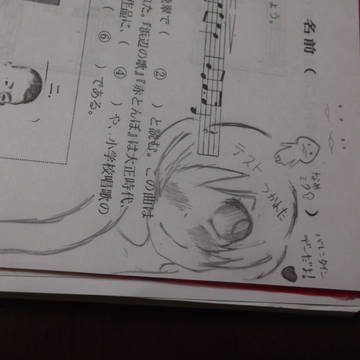 名前（　　）
よう。
テスト
つかれた
（　②　）と読む。この曲は
れた。『浜辺の歌』『赤とんぼ』は大正時代、
作品に、（　④　）や、小学校唱歌の
（　⑥　）である。
二.